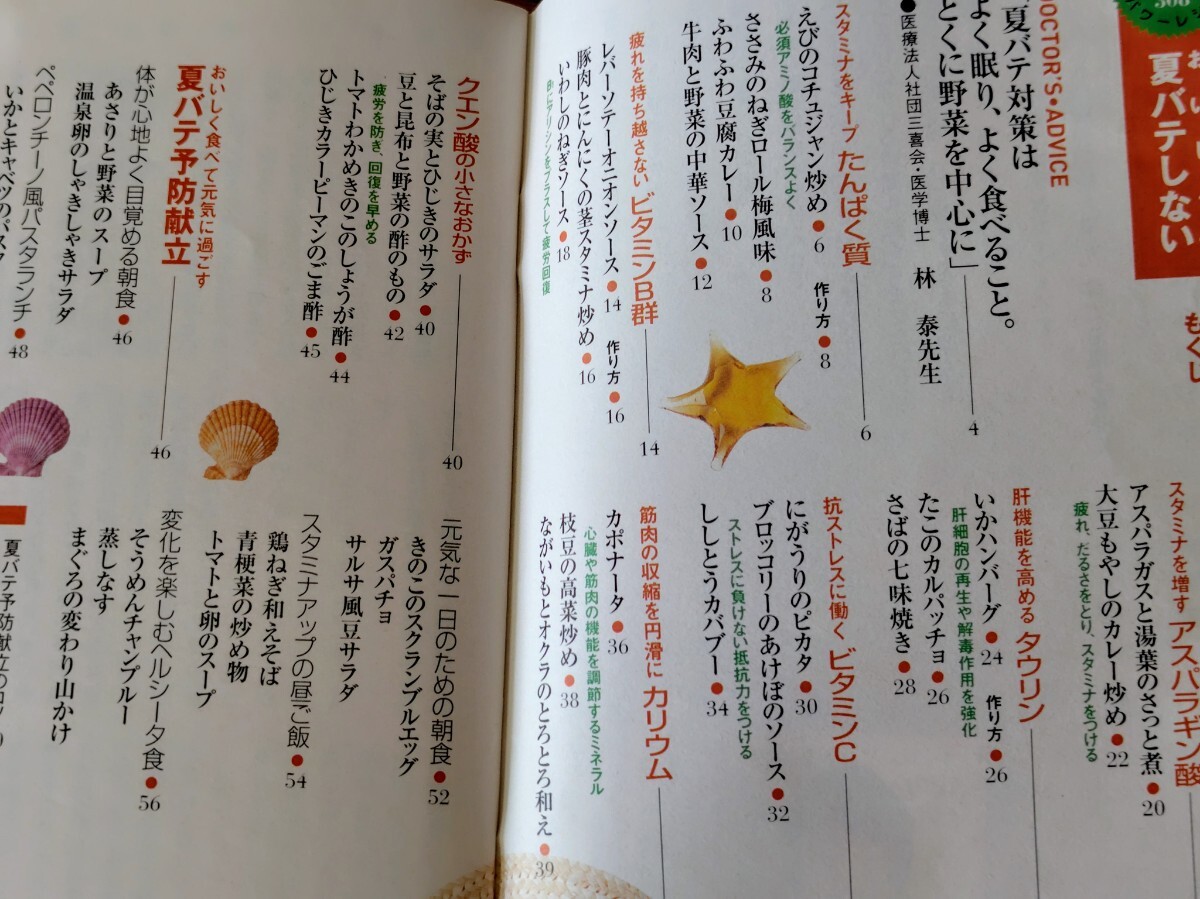 夏バテしない
もくじ
DOCTOR'S・ADVICE
「夏バテ対策は
よく眠り、よく食べること。
とくに野菜を中心に」
4
●医療法人社団三喜会・医学博士 林 泰先生
スタミナをキープ たんぱく質
6
えびのコチュジャン炒め●6 作り方●8
必須アミノ酸をバランスよく
ささみのねぎロール梅風味●8
ふわふわ豆腐カレー●10
牛肉と野菜の中華ソース●12
疲れを持ち越さない ビタミンB群
14
レバーソテーオニオンソース●14 作り方●16
豚肉とにんにくの茎スタミナ炒め●16
いわしのねぎソース●18
Bにアリシンをプラスして疲労回復
スタミナを増す アスパラギン酸
アスパラガスと湯葉のさっと煮●20
大豆もやしのカレー炒め●22
疲れ、だるさをとり、スタミナをつける
肝機能を高める タウリン
いかハンバーグ●24 作り方●26
肝細胞の再生や解毒作用を強化
たこのカルパッチョ●26
さばの七味焼き●28
抗ストレスに働く ビタミンC
にがうりのピカタ●30
ブロッコリーのあけぼのソース●32
ストレスに負けない抵抗力をつける
ししとうカバブー●34
筋肉の収縮を円滑に カリウム
カポナータ●36
心臓や筋肉の機能を調節するミネラル
枝豆の高菜炒め●38
ながいもとオクラのとろとろ和え●39
クエン酸の小さなおかず
40
そばの実とひじきのサラダ●40
豆と昆布と野菜の酢のもの●42
疲労を防ぎ、回復を早める
トマトわかめきのこのしょうが酢●44
ひじきカラーピーマンのごま酢●45
おいしく食べて元気に過ごす
夏バテ予防献立
46
体が心地よく目覚める朝食●46
あさりと野菜のスープ
温泉卵のしゃきしゃきサラダ
ペペロンチーノ風パスタランチ●48
いかとキャベツのパスタ
元気な一日のための朝食●52
きのこのスクランブルエッグ
ガスパチョ
サルサ風豆サラダ
スタミナアップの昼ご飯●54
鶏ねぎ和えそば
青梗菜の炒め物
トマトと卵のスープ
変化を楽しむヘルシー夕食●56
そうめんチャンプルー
蒸しなす
まぐろの変わり山かけ
夏バテ予防献立のコツ